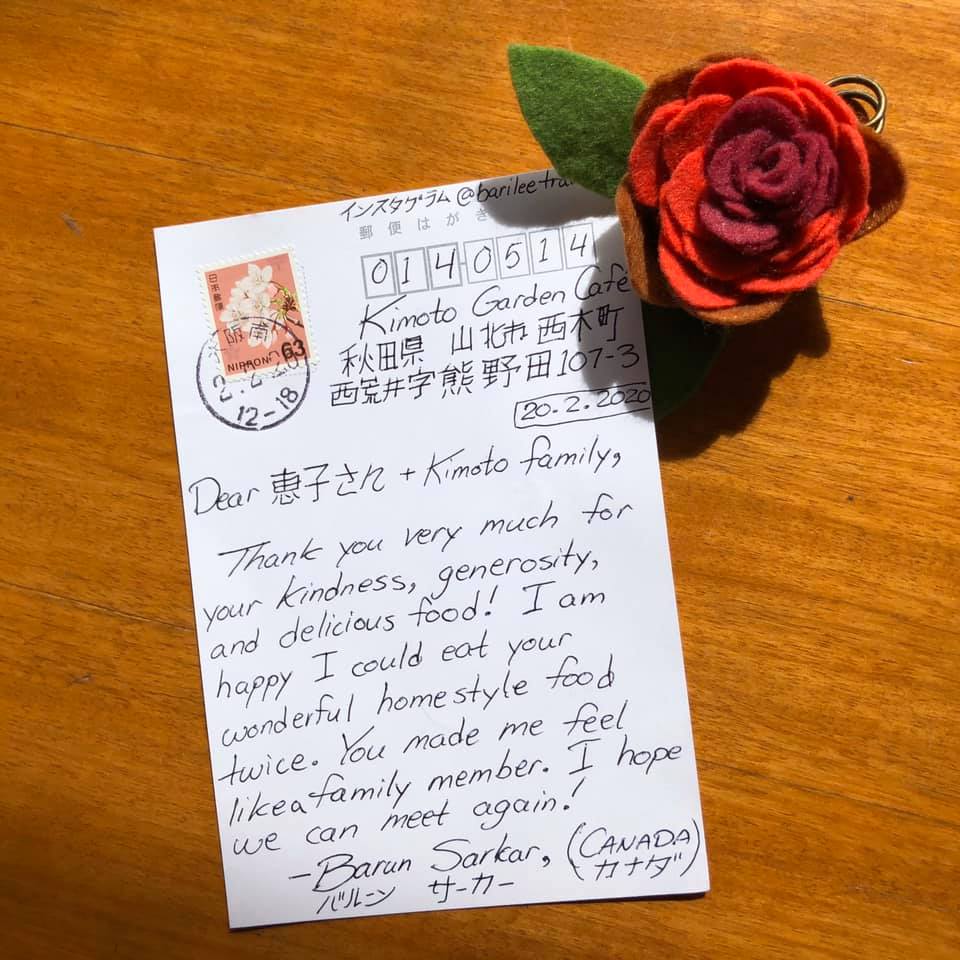 インスタグラム @barilee
郵便はがき
014-0514
Kimoto Garden Café
秋田県 山北市 西木町
西荒井字熊野田107-3
20.2.2020
日本郵便
NIPPON 63
阪南
12-18
Dear 恵子さん + Kimoto family,
Thank you very much for
your kindness, generosity,
and delicious food! I am
happy I could eat your
wonderful homestyle food
twice. You made me feel
like a family member. I hope
we can meet again!
- Barun Sarkar, (CANADA
バルーン サーカー カナダ)